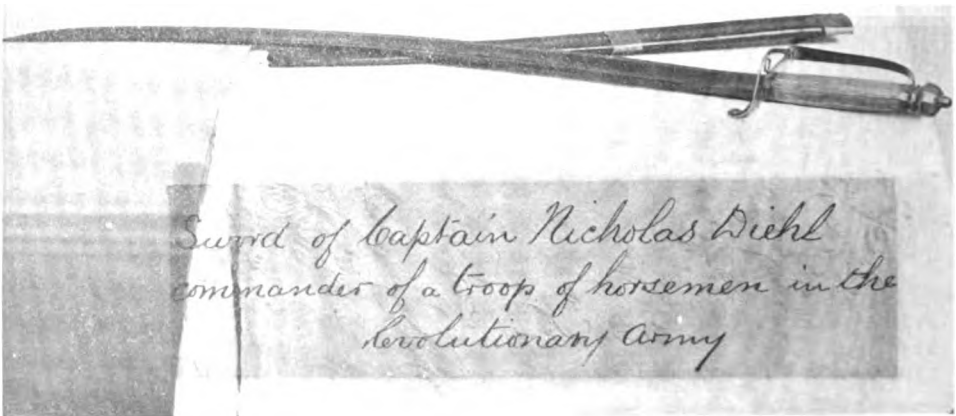 Sword of Captain Nicholas Diehl
commander of a troop of horsemen in the
Revolutionary Army